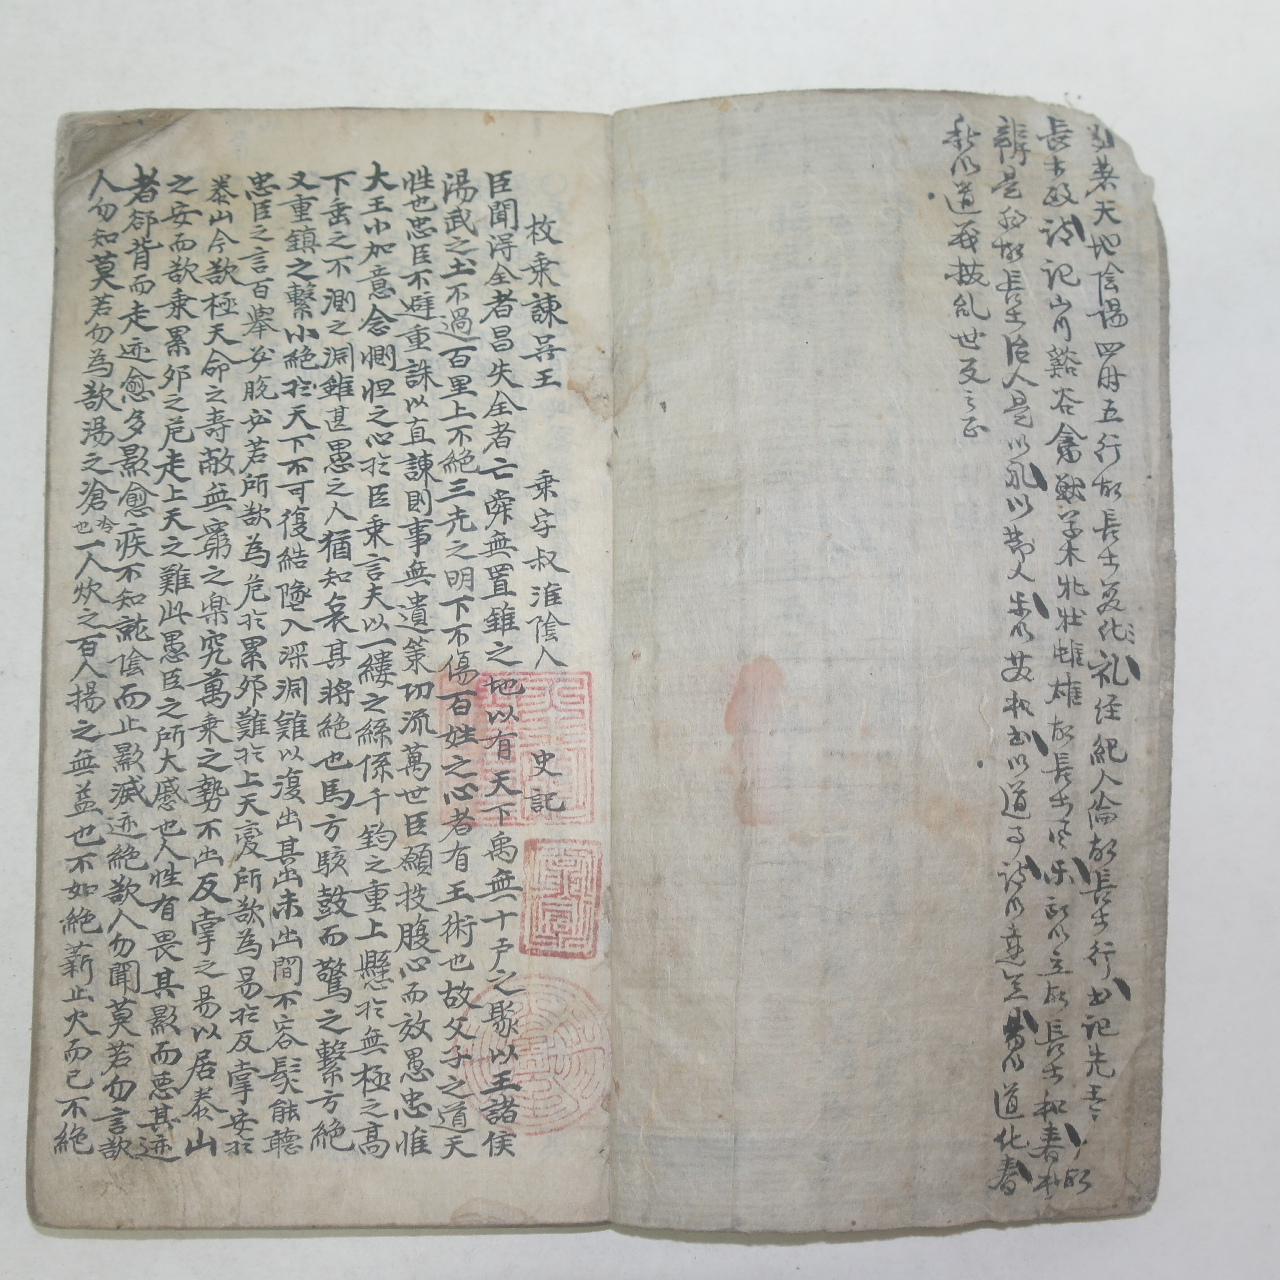 易著天地陰陽四時五行故長於變化礼經紀人倫故長於行書記先王之事故
長於政詩記山川谿谷禽獸草木牝牡雌雄故長於風樂所以立故長於和春秋
辨是非故長於治人是以礼以節人樂以發和書以道事詩以達意易以道化春
秋以道義撥亂世反之正
枚乗諫吳王 乗字叔淮陰人 史記
臣聞得全者昌失全者亡舜無置錐之地以有天下禹無十戶之聚以王諸侯
湯武之土不過百里上不絶三光之明下不傷百姓之心者有王術也故父子之道天
性也忠臣不避重誅以直諫則事無遺策功流萬世臣願披腹心而效愚忠惟
大王小加意念惻怛之心於臣乗言夫以一縷之絲係千鈞之重上懸於無極之高
下垂之不測之淵雖甚愚之人猶知哀其將絶也馬方駭鼓而驚之繫方絶
又重鎮之繫小絶於天下不可復結墜入深淵難以復出其出未出間不容髮能聽
忠臣之言百擧必脫必若所欲為危於累卵難於上天變所欲為易於反掌安於
泰山今欲極天命之壽敝無窮之樂究萬乗之勢不出反掌之易以居泰山
之安而欲乗累卵之危走上天之難此愚臣之所大惑也人性有畏其影而惡其迹
者郤背而走迹愈多影愈疾不知就陰而止影滅迹絶欲人勿聞莫若勿言欲
人勿知莫若勿為欲湯之滄冷也一人炊之百人揚之無益也不如絶薪止火而已不絶